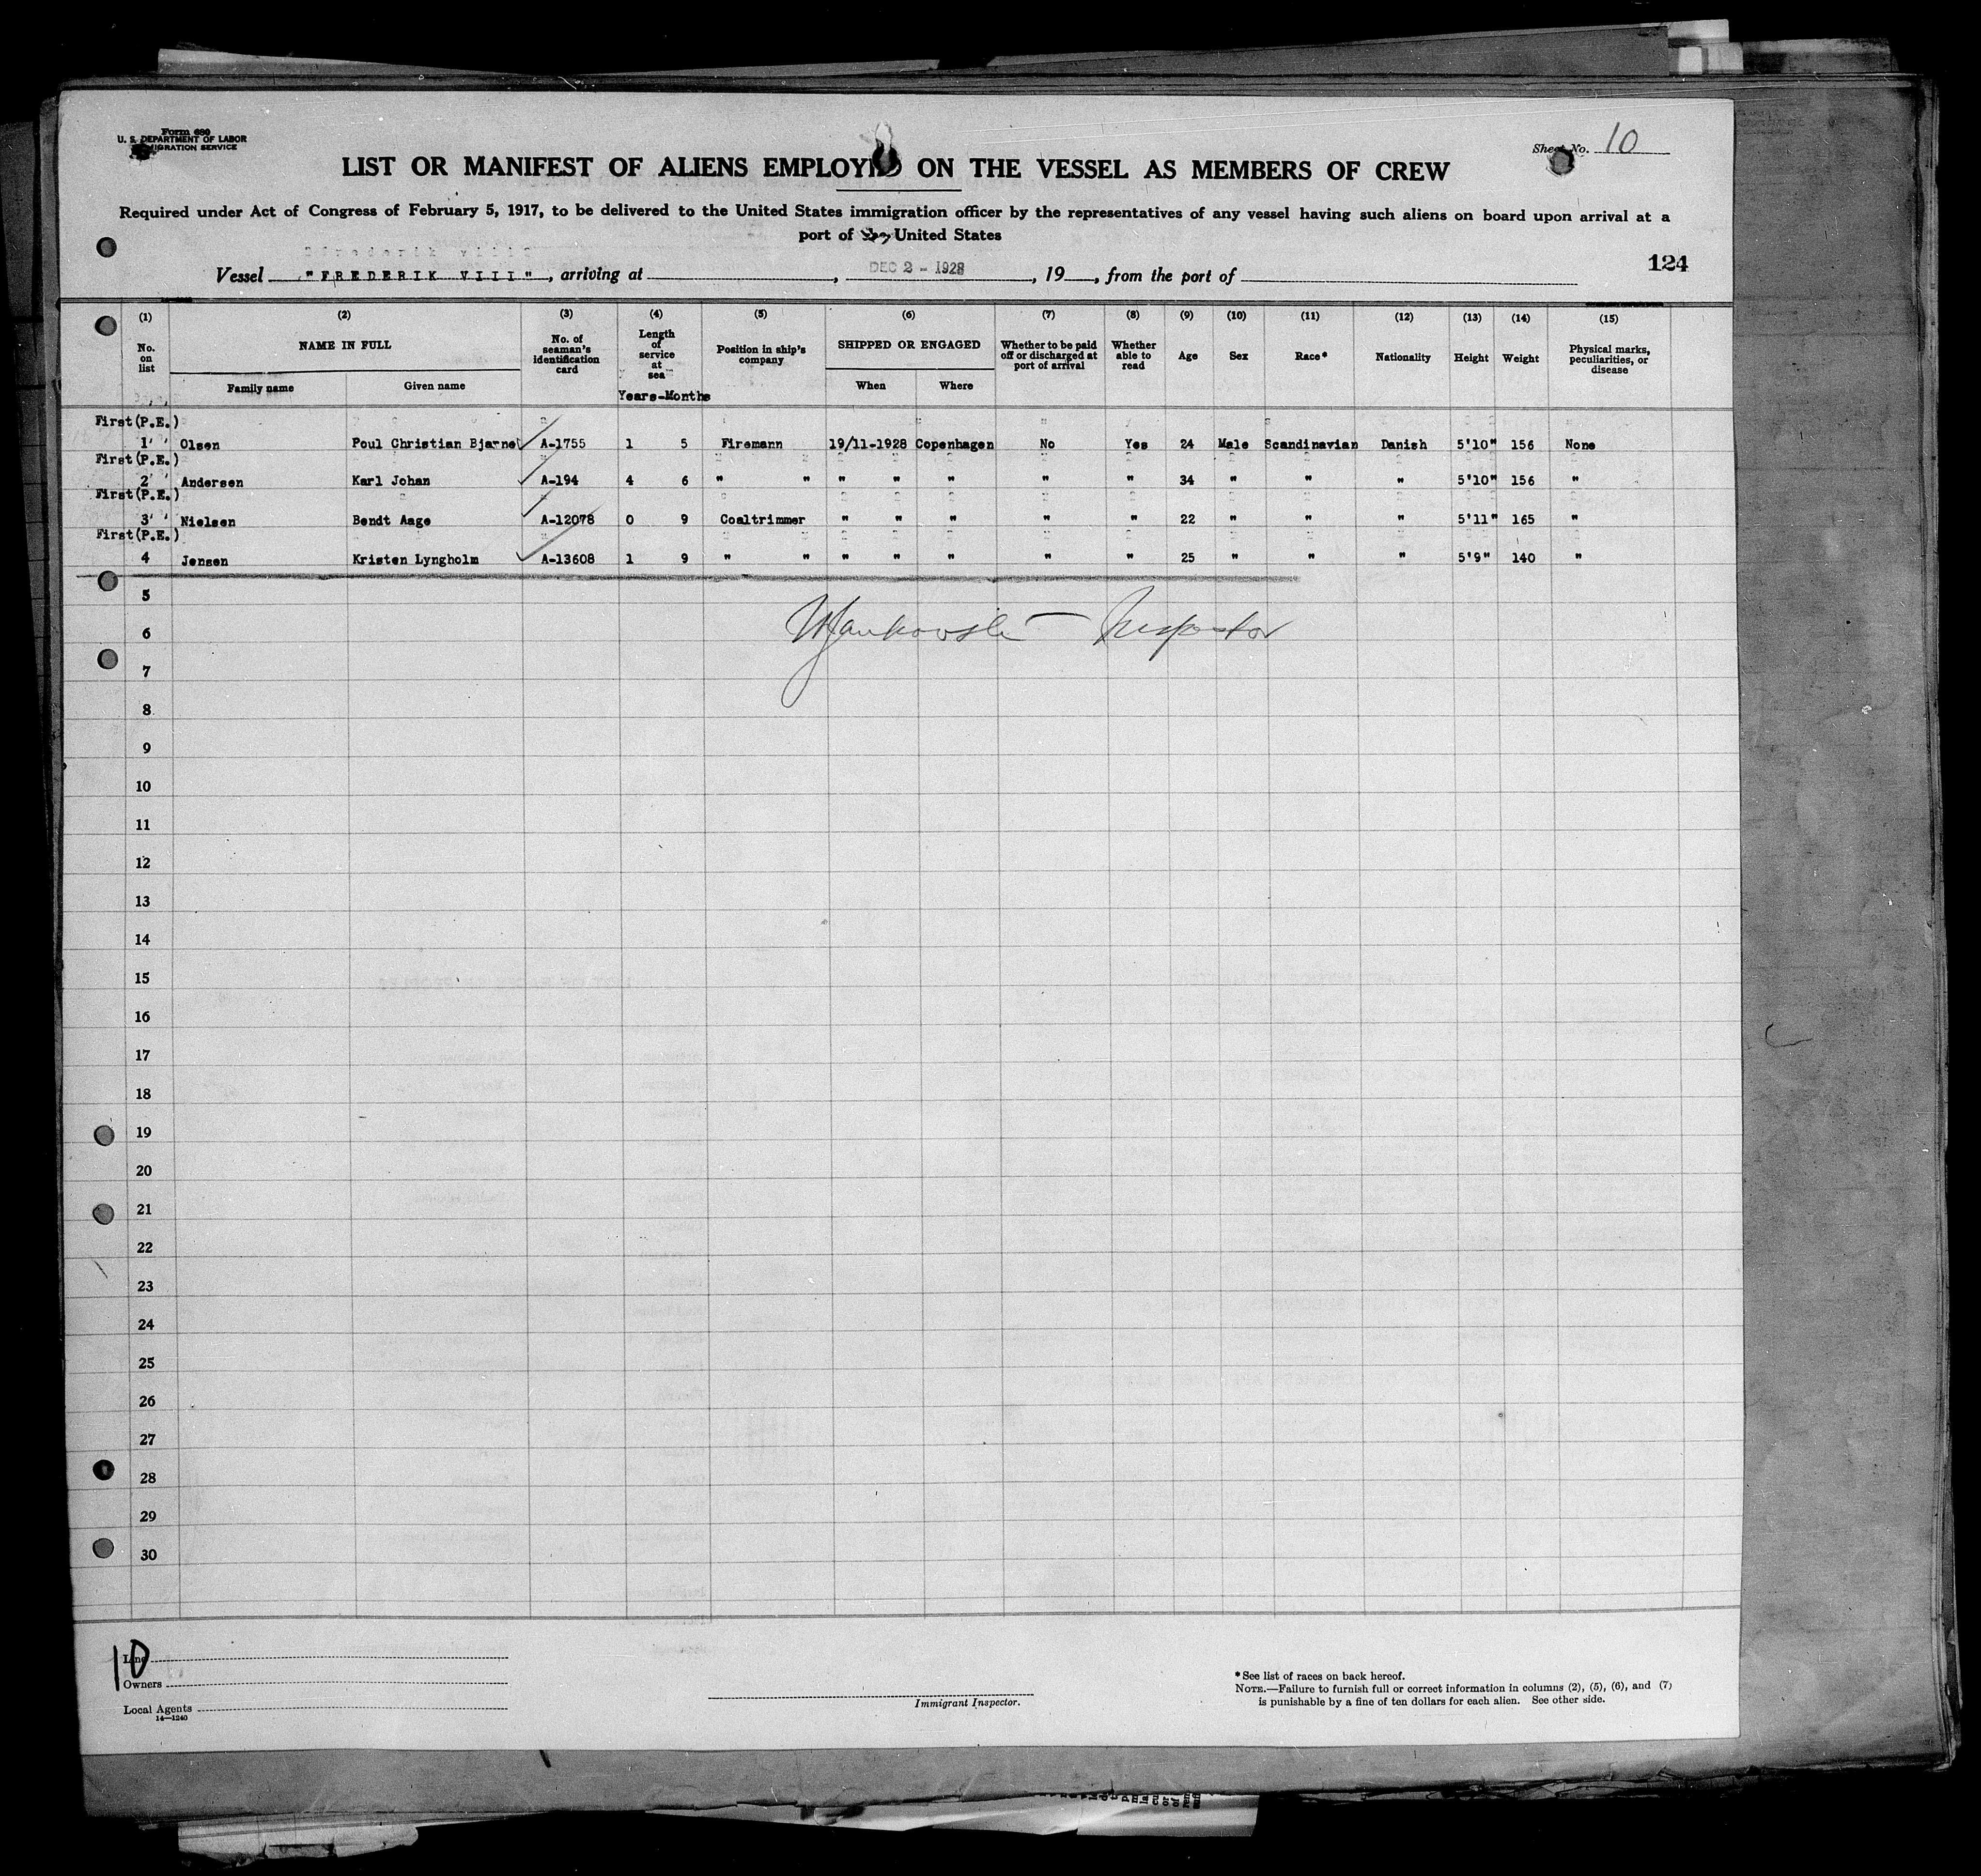 Form 680
U. S. DEPARTMENT OF LABOR
IMMIGRATION SERVICE
Sheet No. 10
LIST OR MANIFEST OF ALIENS EMPLOYED ON THE VESSEL AS MEMBERS OF CREW
Required under Act of Congress of February 5, 1917, to be delivered to the United States immigration officer by the representatives of any vessel having such aliens on board upon arrival at a
port of United States
124
Vessel "FREDERIK VIII", arriving at , DEC 2 - 1928, 19 , from the port of
(1) (2) (3) (4) (5) (6) (7) (8) (9) (10) (11) (12) (13) (14) (15)
No. on list NAME IN FULL Family name Given name No. of seaman's identification card Length of service at sea Years-Months Position in ship's company SHIPPED OR ENGAGED When Where Whether to be paid off or discharged at port of arrival Whether able to read Age Sex Race* Nationality Height Weight Physical marks, peculiarities, or disease
First(P.E.)
1 Olsen Poul Christian Bjarne A-1755 1 5 Firemann 19/11-1928 Copenhagen No Yes 24 Male Scandinavian Danish 5'10" 156 None
First(P.E.)
2 Andersen Karl Johan A-194 4 6 " " " " " " " 34 " " " 5'10" 156 "
First(P.E.)
3 Nielsen Bendt Aage A-12078 0 9 Coaltrimmer " " " " " 22 " " " 5'11" 165 "
First(P.E.)
4 Jensen Kristen Lyngholm A-13608 1 9 " " " " " " " 25 " " " 5'9" 140 "
5
6 Inspector
7
8
9
10
11
12
13
14
15
16
17
18
19
20
21
22
23
24
25
26
27
28
29
30
10
Line
Owners
Local Agents
14—1240
Immigrant Inspector.
*See list of races on back hereof.
NOTE.—Failure to furnish full or correct information in columns (2), (5), (6), and (7)
is punishable by a fine of ten dollars for each alien. See other side.